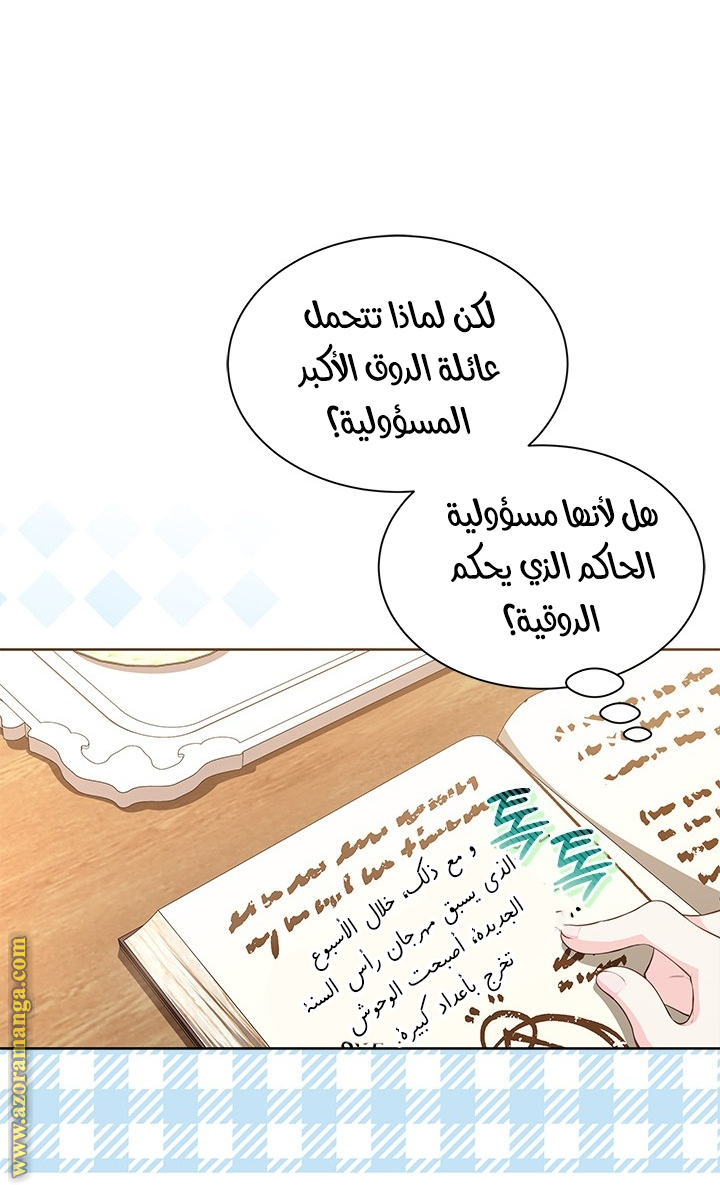 لكن لماذا تتحمل
عائلة الدوق الأكبر
المسؤولية؟
هل لأنها مسؤولية
الحاكم الذي يحكم
الدوقية؟
و مع ذلك، خلال الأسبوع
الذي يسبق مهرجان رأس السنة
الجديدة، أصبحت الوحوش
تخرج بأعداد كبيرة.
www.azoramanga.com